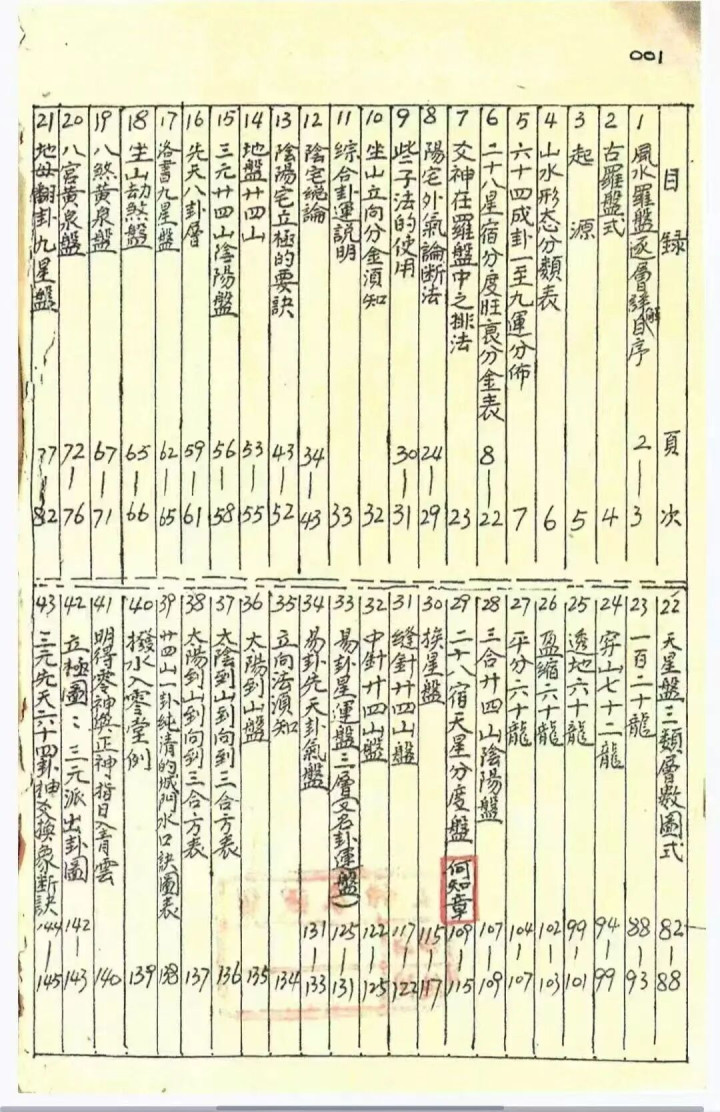 001
目録 頁次
1 風水羅盤逐層詳解自序 2—3
2 古羅盤式 4
3 起源 5
4 山水形态分類表 6
5 六十四成卦一至九運分佈 7
6 二十八星宿分度旺衰分金表 8—22
7 爻神在羅盤中之排法 23
8 陽宅外氣論断法 24—29
9 些子法的使用 30—31
10 坐山立向分金須知 32
11 綜合卦運説明 33
12 陰宅總論 34—43
13 陰陽宅立極的要訣 43—52
14 地盤廿四山 53—55
15 三元廿四山陰陽盤 56—58
16 先天八卦層 59—61
17 洛書九星盤 62—65
18 坐山劫煞盤 65—66
19 八煞黄泉盤 67—71
20 八宫黄泉盤 72—76
21 地母翻卦九星盤 77—82
22 天星盤三類層数圖式 82—88
23 一百二十龍 88—93
24 穿山七十二龍 94—99
25 透地六十龍 99—101
26 盈縮六十龍 102—103
27 平分六十龍 104—107
28 三合廿四山陰陽盤 107—109
29 二十八宿天星分度盤 109—115
何知章
30 挨星盤 115—117
31 縫針廿四山盤 117—122
32 中針廿四山盤 122—125
33 易卦星運盤三層(又名卦運盤) 125—131
34 易卦先天卦氣盤 131—133
35 立向法須知 134
36 太陽到山盤 135
37 太陰到山到向到三合方表 136
38 太陽到山到向到三合方表 137
39 廿四山一卦純清的城門水口訣圖表 138
40 撥水入零堂例 139
41 明得零神與正神指日入青雲 140
42 立極圖：三元派出卦圖 142—143
43 三元先天六十四卦抽爻換象断訣 144—145